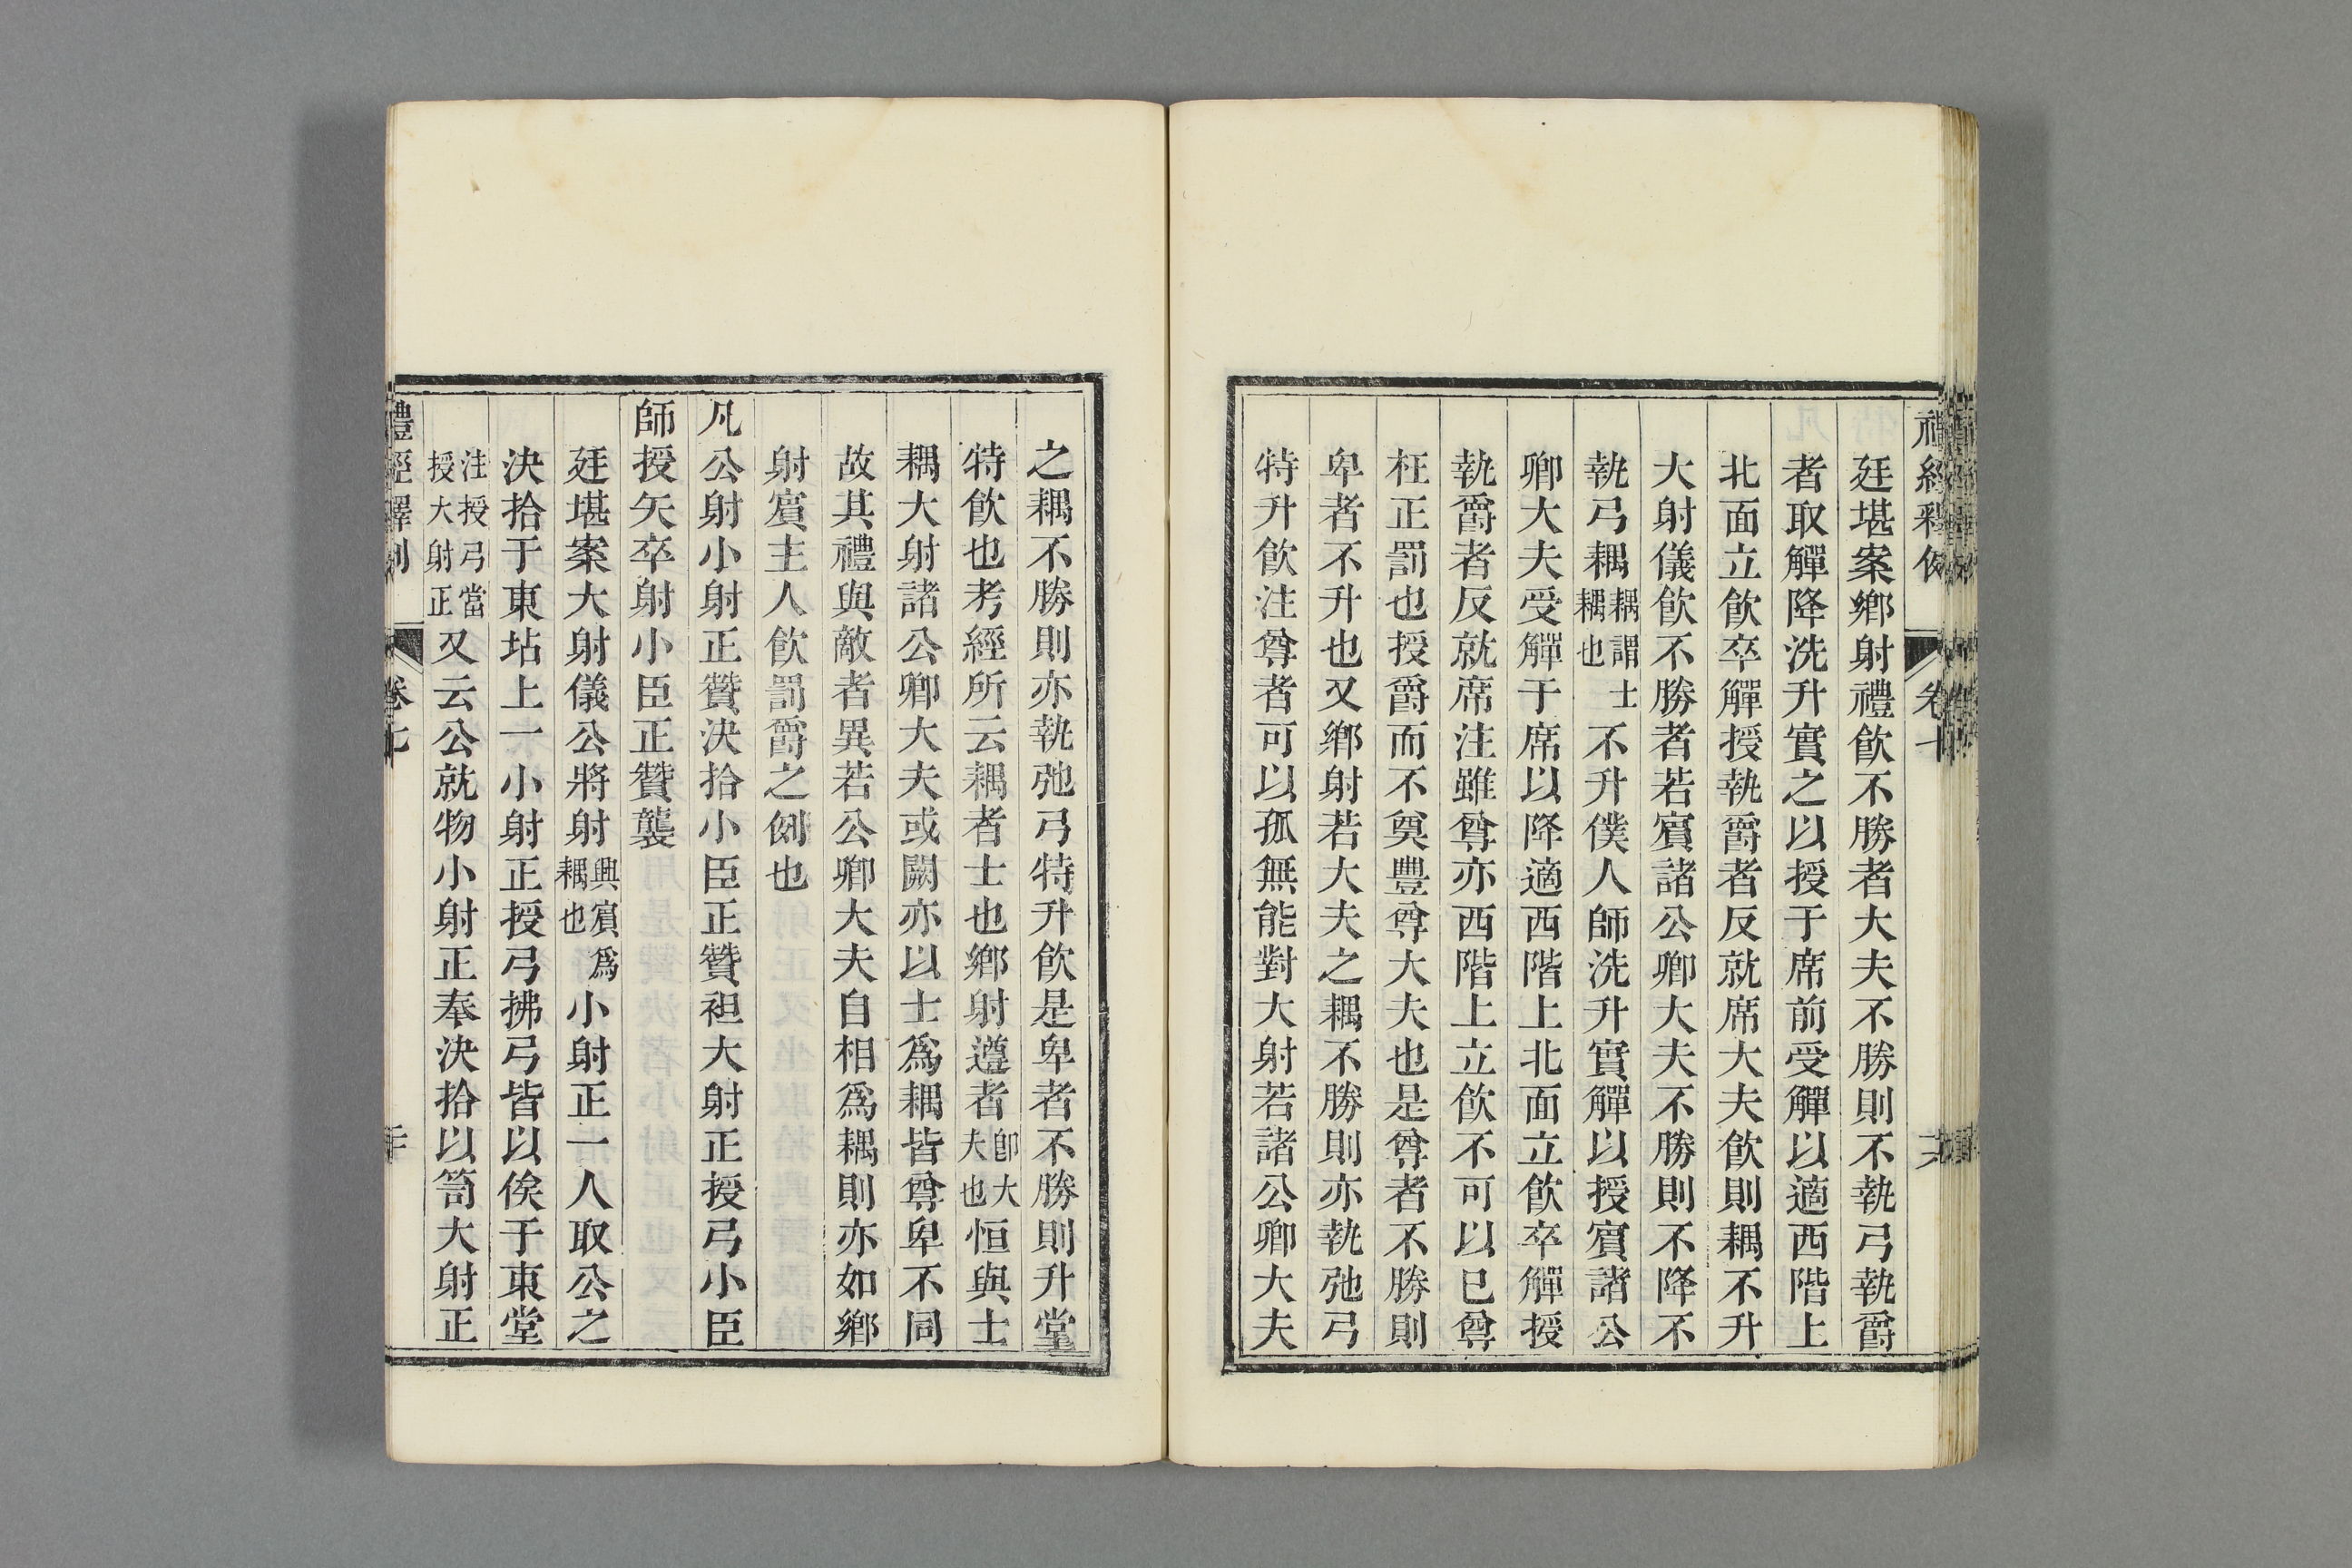 廷堪案鄉射禮飮不勝者大夫不勝則不執弓執爵
者取觶降洗升實之以授于席前受觶以適西階上
北面立飮卒觶授執爵者反就席大夫飮則耦不升
大射儀飮不勝者若賓諸公卿大夫不勝則不降不
執弓耦不升僕人師洗升實觶以授賓諸公
耦謂士
耦也
卿大夫受觶于席以降適西階上北面立飮卒觶授
執爵者反就席注雖尊亦西階上立飮不可以已尊
枉正罰也授爵而不奠豐尊大夫也是尊者不勝則
卑者不升也又鄉射若大夫之耦不勝則亦執弛弓
特升飮注尊者可以孤無能對大射若諸公卿大夫
之耦不勝則亦執弛弓特升飮是卑者不勝則升堂
特飮也考經所云耦者士也鄉射遵者恒與士
卽大
夫也
耦大射諸公卿大夫或闕亦以士爲耦皆尊卑不同
故其禮與敵者異若公卿大夫自相爲耦則亦如鄉
射賓主人飮罰爵之例也
凡公射小射正贊決拾小臣正贊袒大射正授弓小臣
師授矢卒射小臣正贊襲
廷堪案大射儀公將射小射正一人取公之
興賓爲
耦也
決拾于東坫上一小射正授弓拂弓皆以俟于東堂
注授弓當
授大射正
又云公就物小射正奉決拾以笥大射正
禮經釋例
卷七